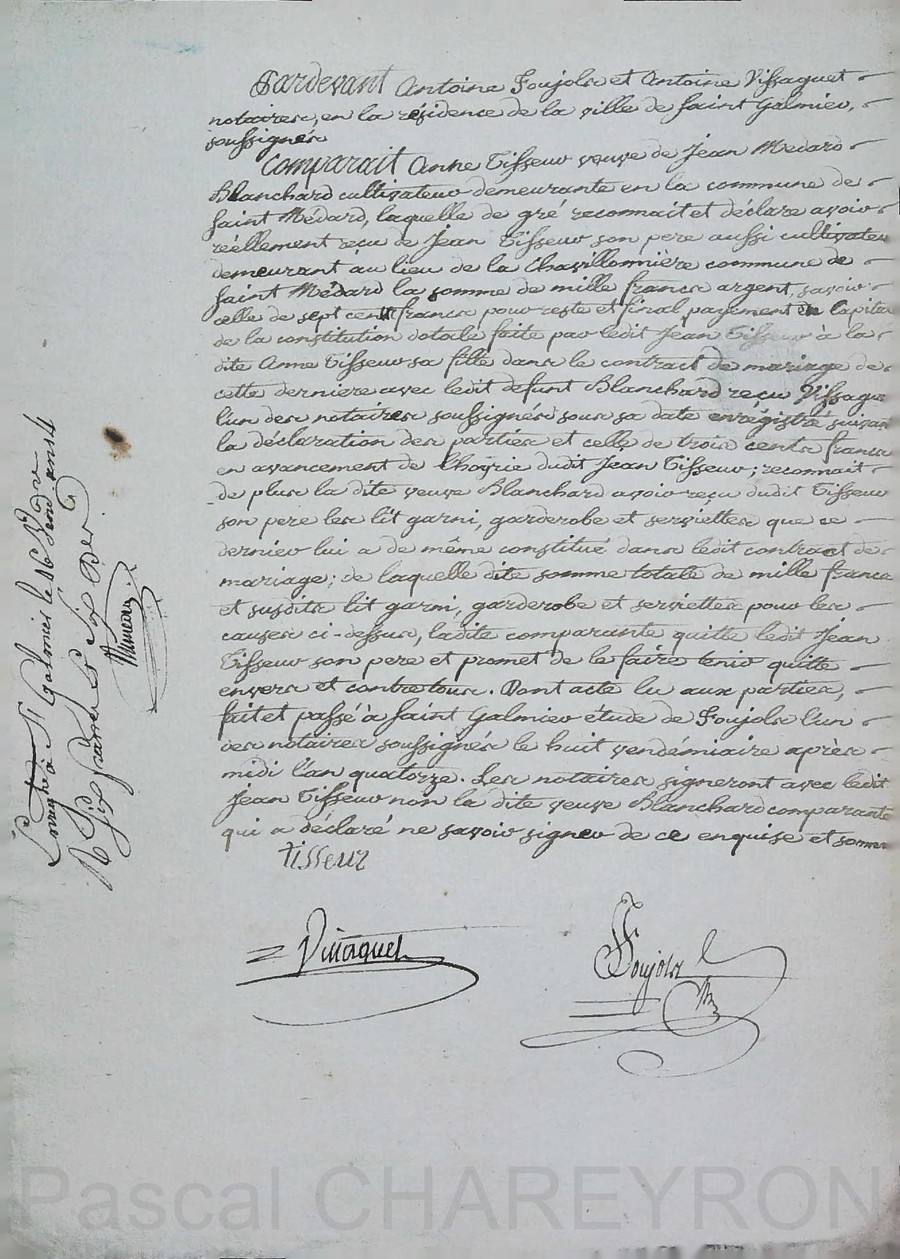 Pardevant Antoine Foujols et Antoine Vissaguet
notaires, en la résidence de la ville de Saint Galmier,
soussignés
Comparait Anne Tisseur veuve de Jean Medard
Blanchard cultivateur demeurante en la commune de
Saint Médard, laquelle de gré reconnait et déclare avoir
réellement reçu de Jean Tisseur son pere aussi cultivateu
demeurant au lieu de la Chavillonniere commune de
Saint Médard la somme de mille francs argent, savoir
celle de sept cent francs pour reste et final payement du capital
de la constitution dotale faite par ledit Jean Tisseur à la
dite Anne Tisseur sa fille dans le contract de mariage de
cette derniere avec ledit defunt Blanchard reçu Vissague
l'un des notaires soussignés sous sa date enrégistré suivan
la déclaration des parties et celle de trois cents francs
en avancement de l'hoyrie dudit Jean Tisseur; reconnait
de plus la dite veuve Blanchard avoir reçu dudit Tisseur
son pere les lit garni, garderobe et serviettes que ce
dernier lui a de même constitué dans ledit contract de
mariage; de laquelle dite somme totale de mille francs
et susdits lit garni, garderobe et serviettes pour les
causes ci-dessus, ladite comparante quitte ledit Jean
Tisseur son pere et promet de le faire tenir quitte
envers et contre tous. Dont acte lu aux parties,
fait et passé à Saint Galmier étude de Foujols l'un
des notaires soussignés le huit vendémiaire après
midi l'an quatorze. Les notaires signeront avec ledit
Jean Tisseur non la dite veuve Blanchard comparante
qui a déclaré ne savoir signer de ce enquise et somm
tisseur
Vissaguet
Foujols
Enregté à St Galmier le 16 Vend. an 14
Pascal CHAREYRON